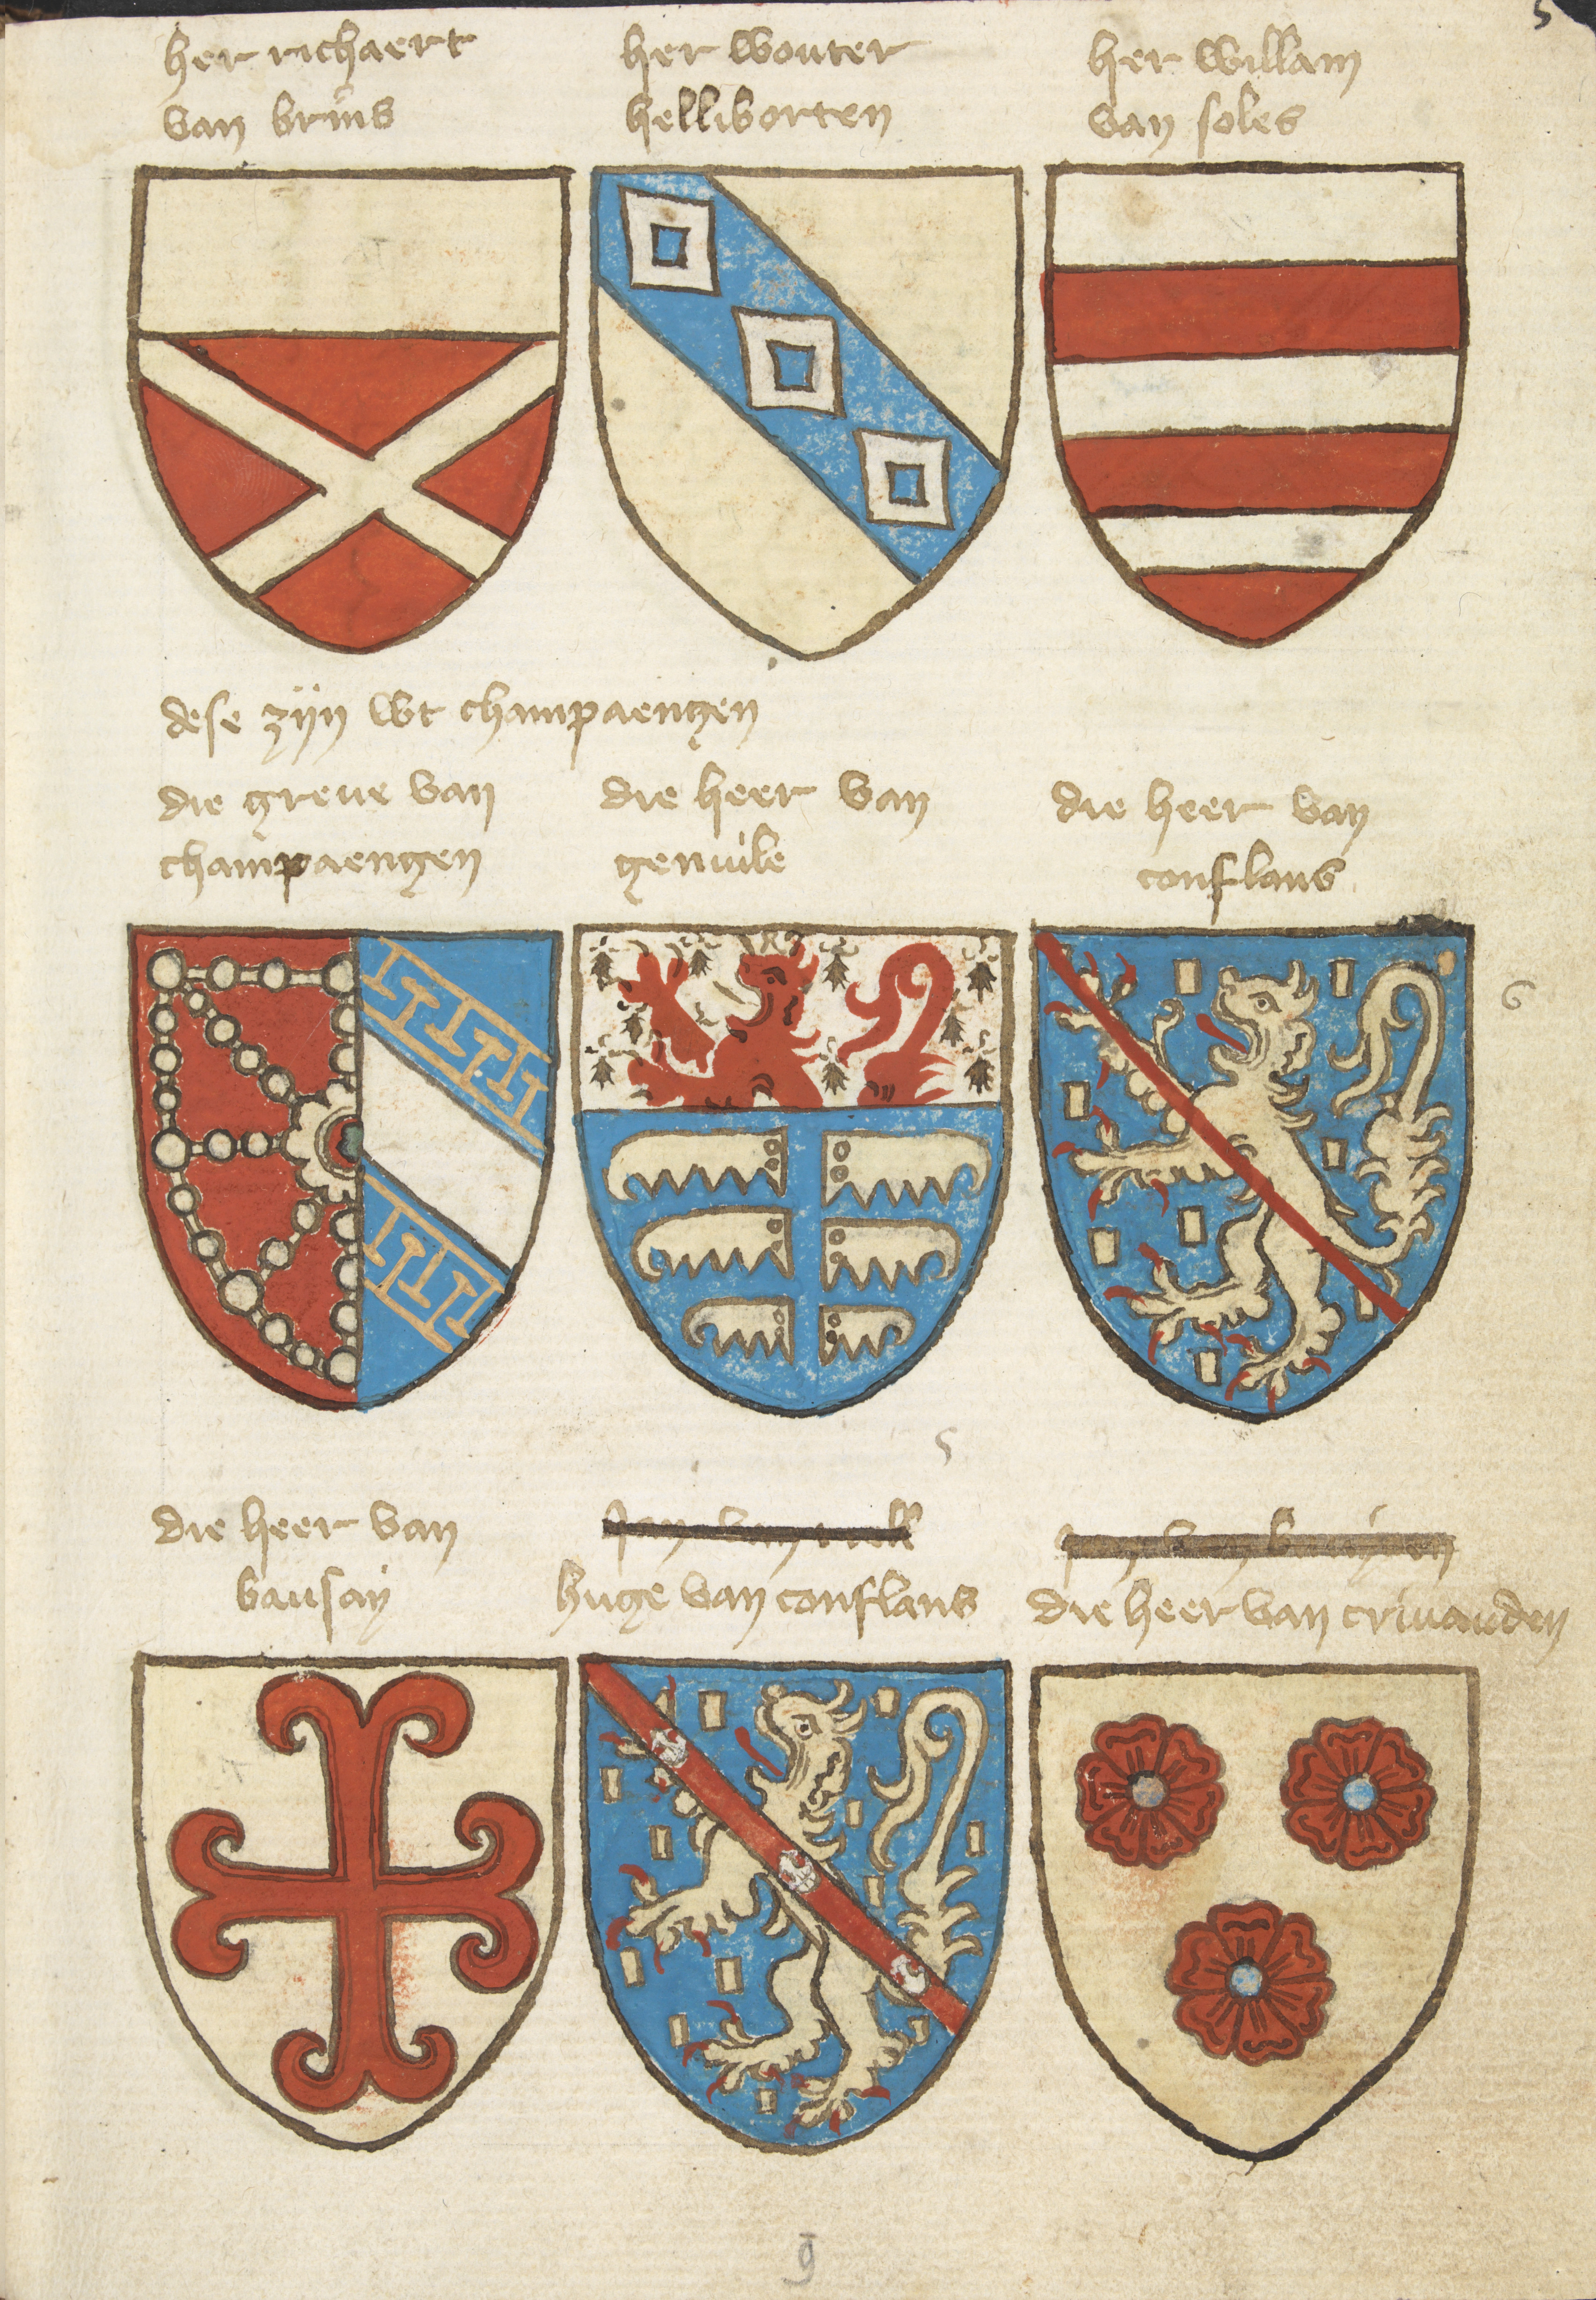 5
her richaert
van bruis
her wouter
helliborten
her willam
van soles
dese zijn wt champaengen
die greue van
champaengen
die heer van
genuile
die heer van
conflans
6
5
die heer van
bausay
Jan van nell
huge van conflans
Jan van
die heer van criuanden
9